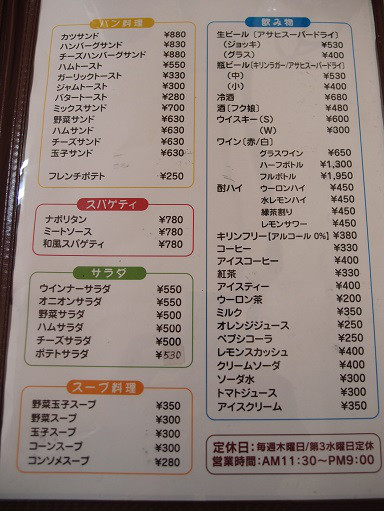 パン料理
カツサンド ¥880
ハンバーグサンド ¥830
チーズハンバーグサンド ¥880
ハムトースト ¥550
ガーリックトースト ¥330
ジャムトースト ¥300
バタートースト ¥280
ミックスサンド ¥700
野菜サンド ¥630
ハムサンド ¥630
チーズサンド ¥630
玉子サンド ¥630
フレンチポテト ¥250
スパゲティ
ナポリタン ¥780
ミートソース ¥780
和風スパゲティ ¥780
サラダ
ウインナーサラダ ¥550
オニオンサラダ ¥550
野菜サラダ ¥500
ハムサラダ ¥500
チーズサラダ ¥500
ポテトサラダ ¥530
スープ料理
野菜玉子スープ ¥350
野菜スープ ¥300
玉子スープ ¥300
コーンスープ ¥300
コンソメスープ ¥280
飲み物
生ビール[アサヒスーパードライ]
(ジョッキ) ¥530
(グラス) ¥400
瓶ビール[キリンラガー/アサヒスーパードライ]
(中) ¥530
(小) ¥400
冷酒 ¥680
酒[フク娘] ¥480
ウイスキー(S) ¥600
(W) ¥300
ワイン[赤/白]
グラスワイン ¥650
ハーフボトル ¥1,300
フルボトル ¥1,950
酎ハイ ウーロンハイ ¥450
水レモンハイ ¥450
緑茶割り ¥450
レモンサワー ¥450
キリンフリー[アルコール 0%] ¥380
コーヒー ¥330
アイスコーヒー ¥400
紅茶 ¥330
アイスティー ¥400
ウーロン茶 ¥200
ミルク ¥350
オレンジジュース ¥250
ペプシコーラ ¥250
レモンスカッシュ ¥400
クリームソーダ ¥400
ソーダ水 ¥300
トマトジュース ¥300
アイスクリーム ¥350
定休日:毎週木曜日/第3水曜日定休
営業時間:AM11:30～PM9:00